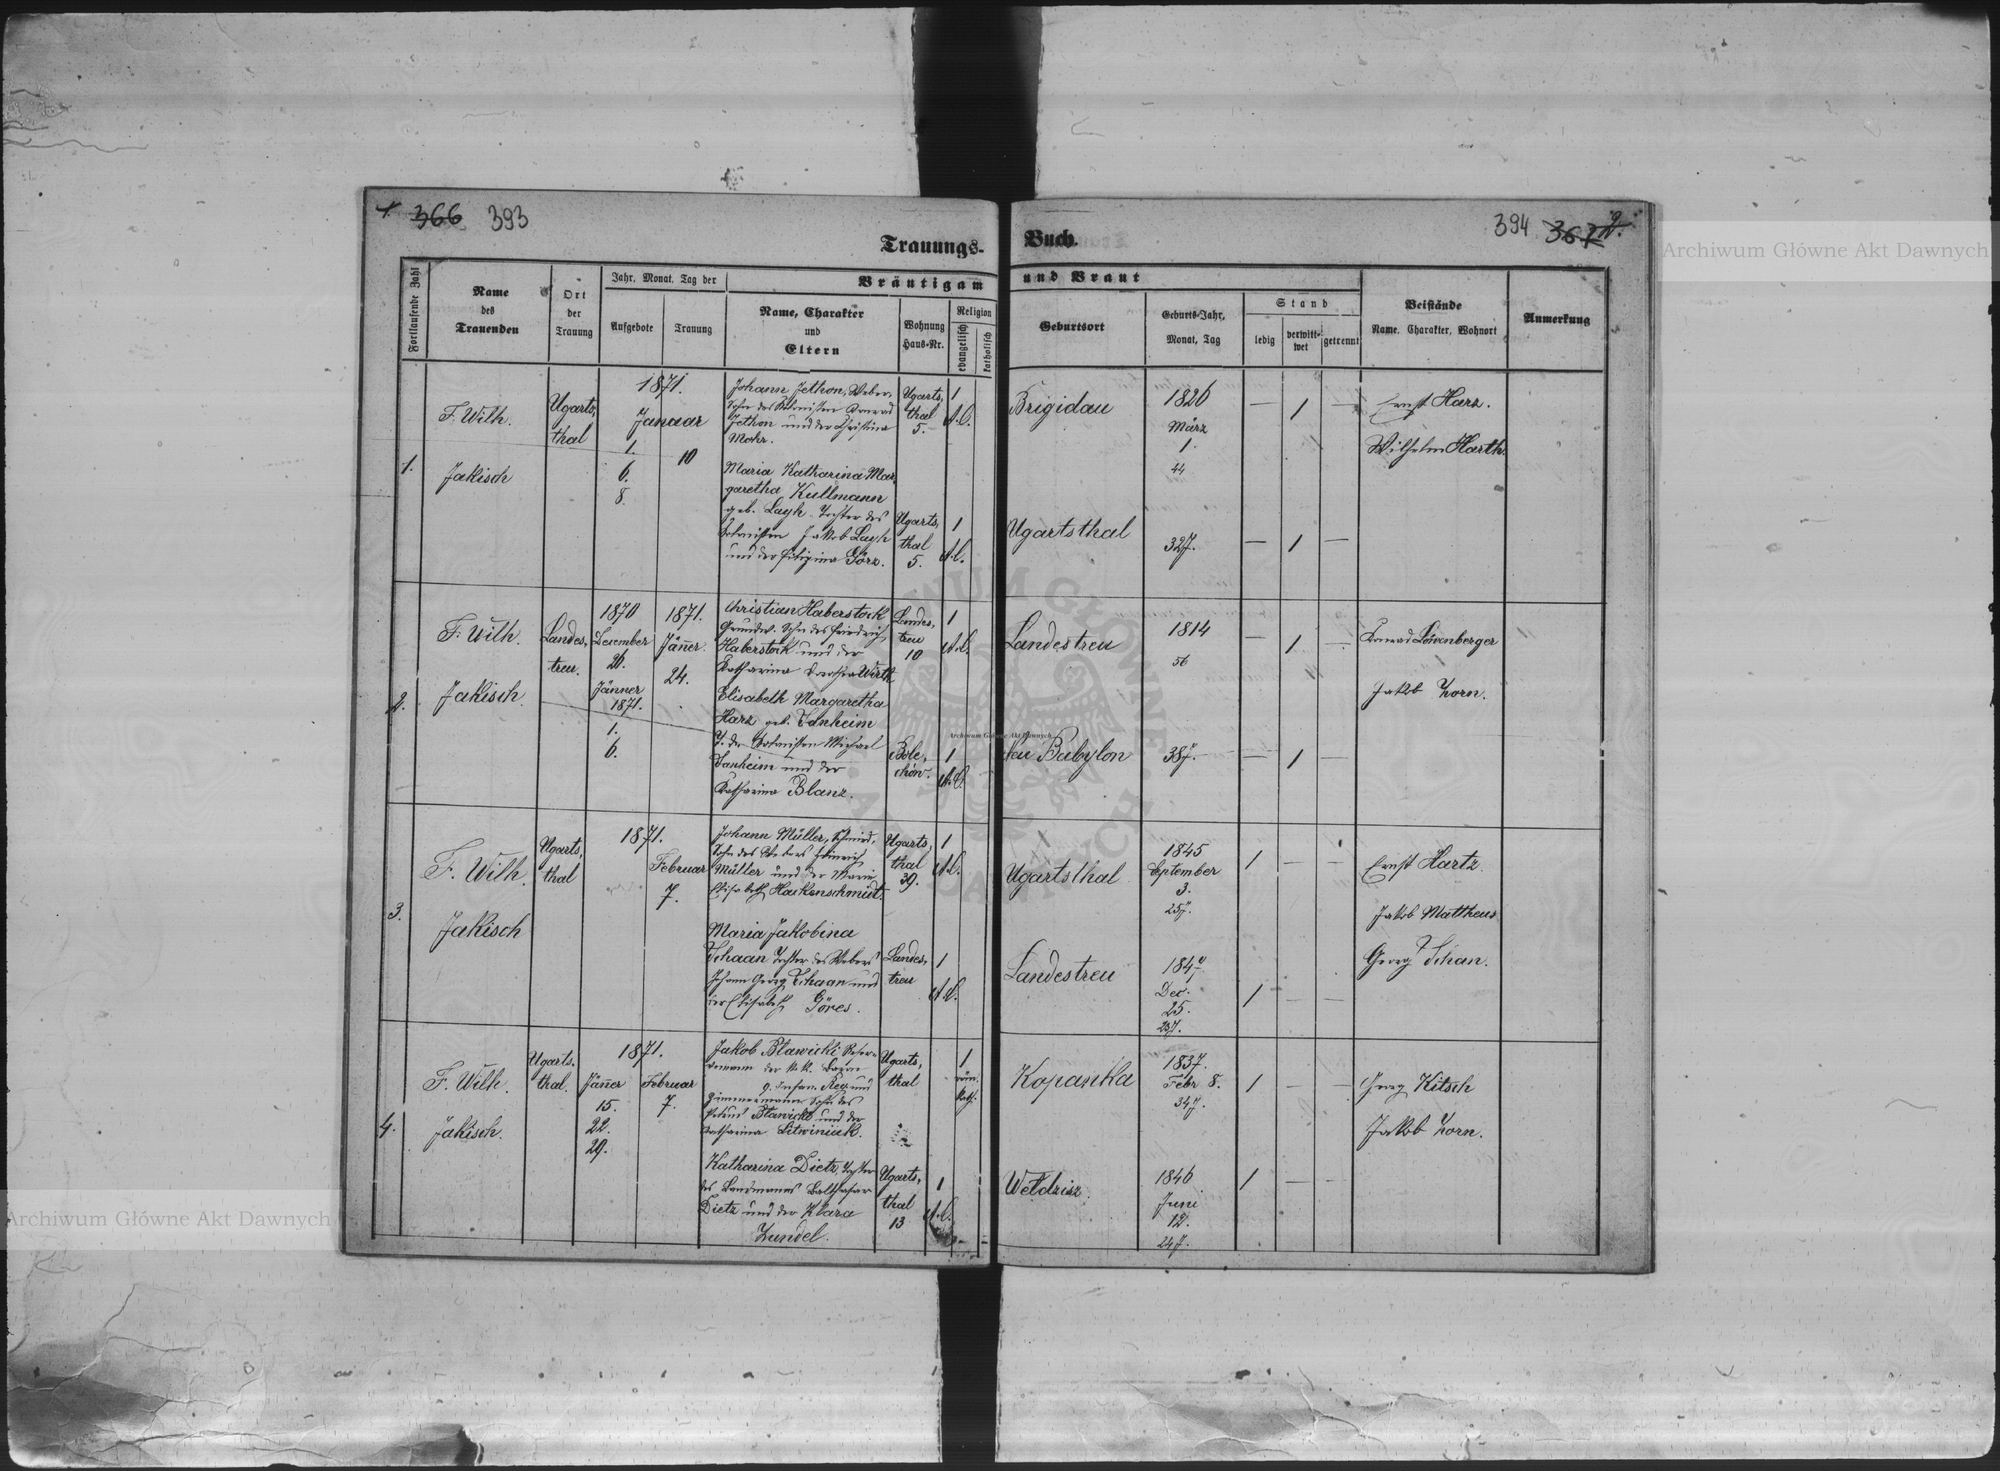 366 393
394 367 2.
Trauungs-Buch.
Fortlaufende Zahl
Name
des
Trauenden
Ort
der
Trauung
Jahr, Monat, Tag der
Aufgebote
Trauung
Bräutigam und Braut
Name, Charakter
und
Eltern
Wohnung
Haus-Nr.
Religion
evangelisch
katholisch
Geburtsort
Geburts-Jahr,
Monat, Tag
Stand
ledig
verwitt-
wet
getrennt
Beistände
Name, Charakter, Wohnort
Anmerkung
1.
F. Wilh.
Jakisch
Ugarts,
thal
1871.
Januar
1.
6.
8.
10
Johann Jethon, Weber,
Sohn des Kolonisten Konrad
Jethon und der Christina
Mohr.
Ugarts,
thal
5.
1
A.C.
Brigidau
1826
März
1.
44
— 1 —
Ernst Harz.
Wilhelm Harth.
Maria Katharina Mar
garetha Kullmann
geb. Layh. Tochter des
Kolonisten Jakob Layh
und der Görz.
Ugarts,
thal
5.
1
A.C.
Ugartsthal
32J.
— 1 —
2.
F. Wilh.
Jakisch.
Landes,
treu.
1870
Dezember
26.
Jänner
1871.
1.
6.
1871.
Jäner.
24.
Christian Haberstock
Grundw. Sohn des Friedrich
Haberstock und der
Katharina Dorothea Wirth
Landes,
treu
10
1
A.C.
Landestreu
1814
56
— 1 —
Konrad Löwenberger
Jakob Zorn.
Elisabeth Margaretha
Harz geb. Tanheim
T. des Kolonisten Michael
Tanheim und der
Katharina Blanz.
Bole,
chów.
1
A.C.
Neu Babylon
38J.
— 1 —
3.
F. Wilh.
Jakisch
Ugarts,
thal
1871.
Februar
7.
Johann Müller, Schmied,
Sohn des Webers Heinrich
Müller und der Marie
Elisabeth Hackenschmidt.
Ugarts,
thal
39.
1
A.C.
Ugartsthal
1845
September
3.
25J.
1 — —
Ernst Hartz
Jakob Mattheus
Georg Schan.
Maria Jakobina
Schaan Tochter des Webers
Johann Georg Schaan und
der Elisabeth Göres.
Landes,
treu
1
A.C.
Landestreu
1847
Dec.
25.
23J.
1 — —
4.
F. Wilh.
Jakisch.
Ugarts.
thal.
1871.
Jäner
15.
22.
29.
Februar
7.
Jakob Stawicki Reser-
vemann der k.k. Baron
9. Infan. Reg. und
Zimmermann Sohn des
Stawicki und der
Katharina Litwiniuk.
Ugarts,
thal
1
röm.
kath.
Kopanka
1837.
Febr. 8.
34J.
1 — —
Georg Kitsch
Jakob Zorn.
Katharina Dietz, Tochter
des Landmanns Balthasar
Dietz und der Klara
Zundel.
Ugarts,
thal
13
1
A.C.
Weldzisz.
1846
Juni
12.
24J.
1 — —
Archiwum Główne Akt Dawnych
Archiwum Główne Akt Dawnych
Archiwum Główne Akt Dawnych